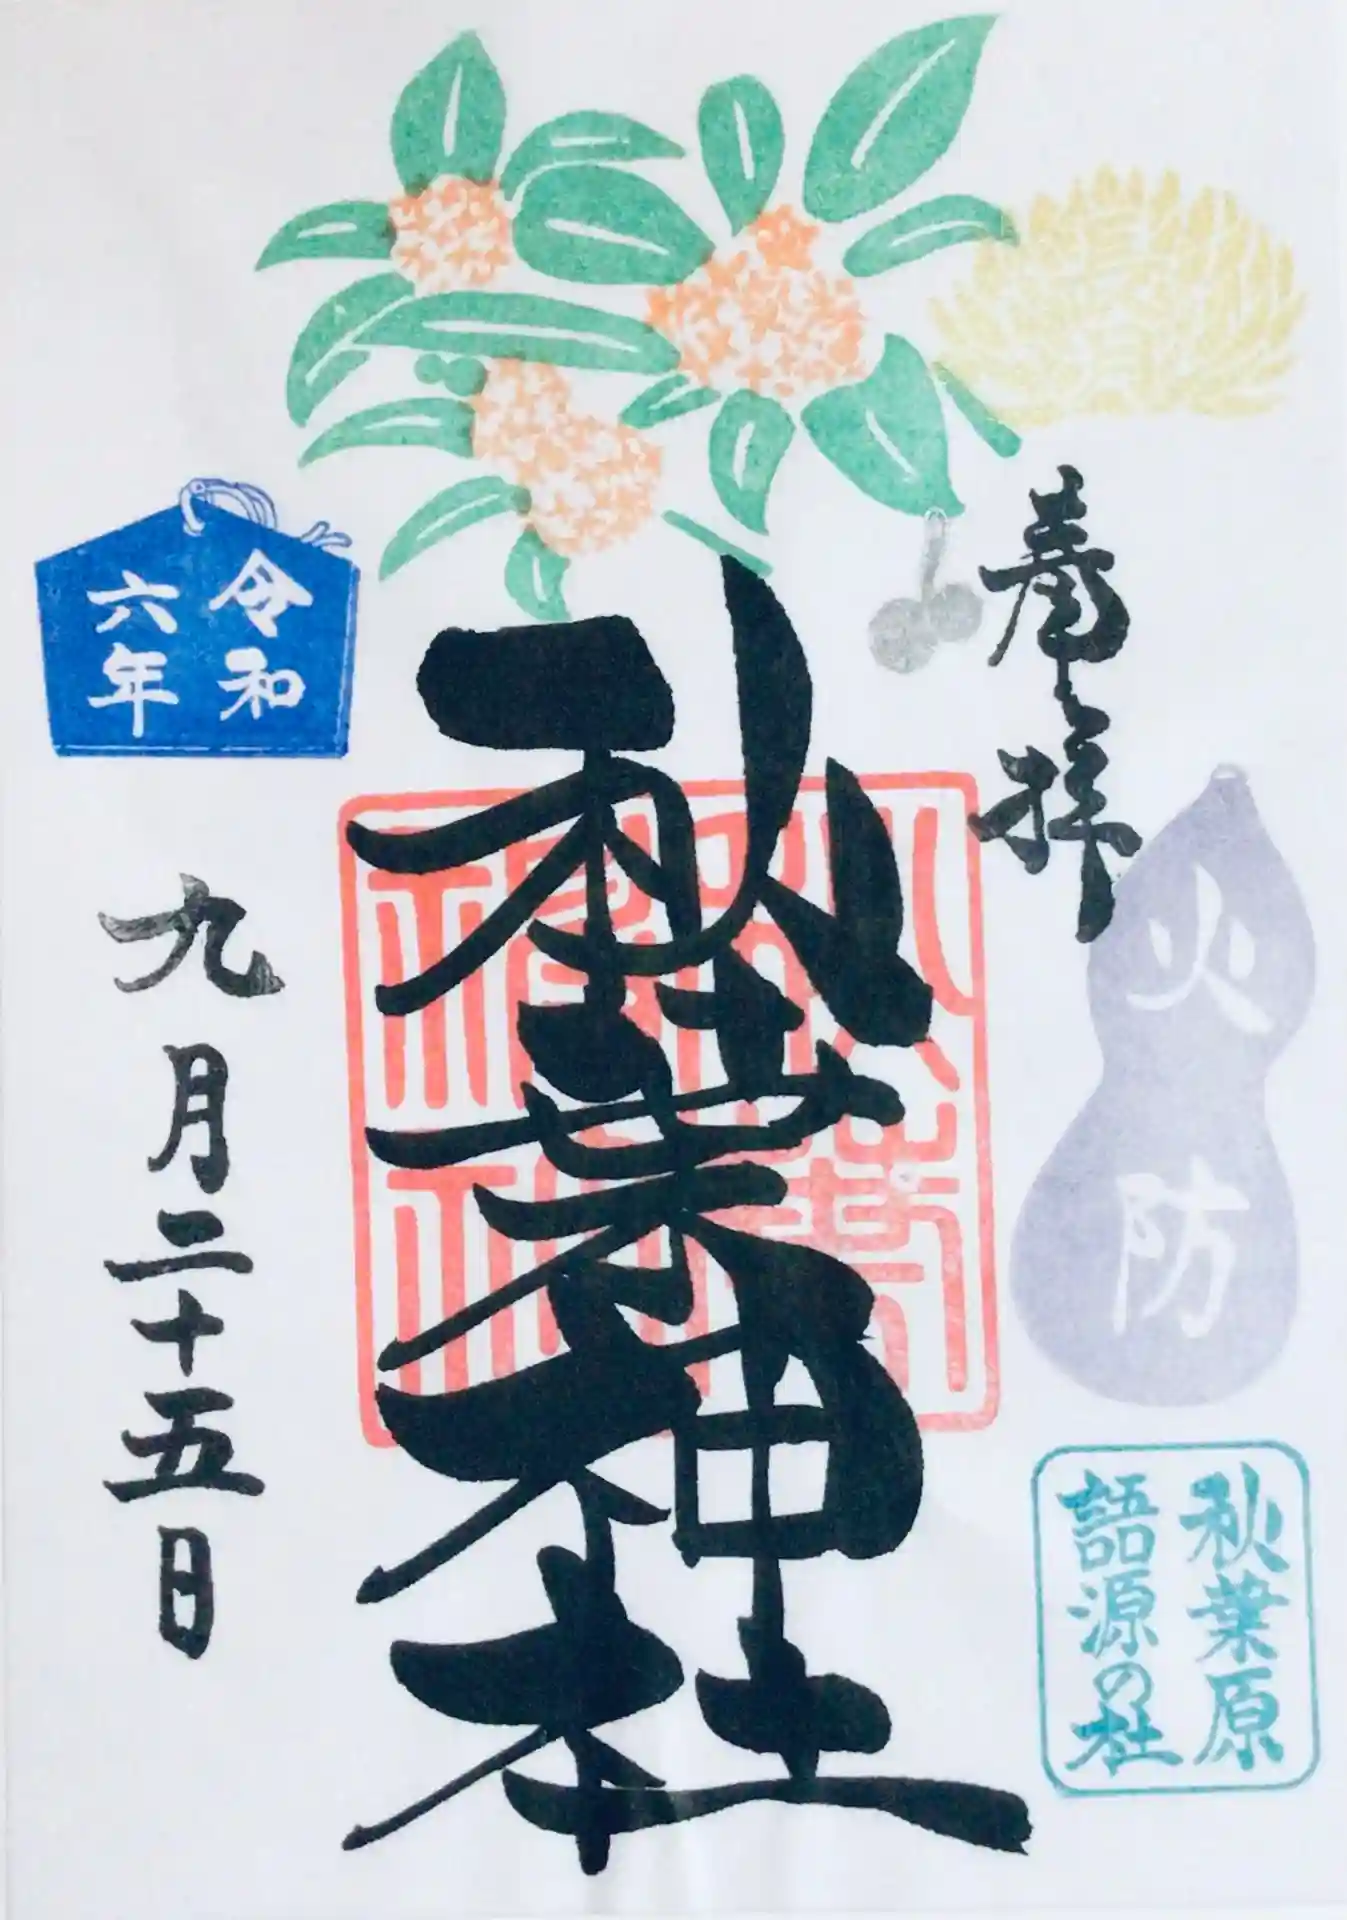 奉拝
火防
秋葉原
語源の杜
秋葉神社
令和
六年
九月二十五日